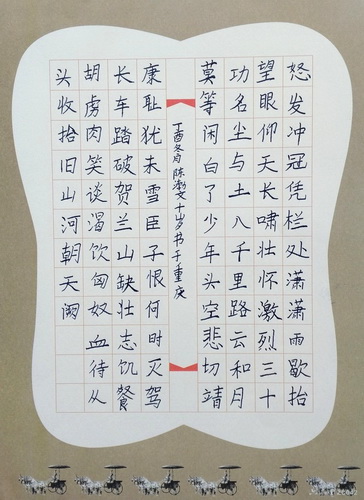 怒发冲冠凭栏处潇潇雨歇抬
望眼仰天长啸壮怀激烈三十
功名尘与土八千里路云和月
莫等闲白了少年头空悲切靖
丁酉冬月 陈渤文 十岁书于重庆
康耻犹未雪臣子恨何时灭驾
长车踏破贺兰山缺壮志饥餐
胡虏肉笑谈渴饮匈奴血待从
头收拾旧山河朝天阙